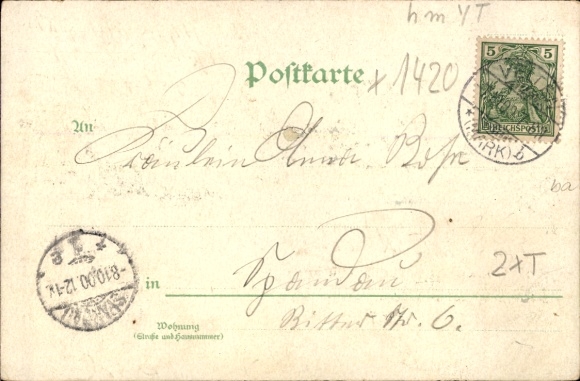 h m Y T
Postkarte
x 1420
5 5
REICHSPOST
(MARK) b
An
Fräulein Anna Rose
ba
8.10.00.12-1
in Spandau
2xT
Ritter Str. 6.
Wohnung
(Straße und Hausnummer)